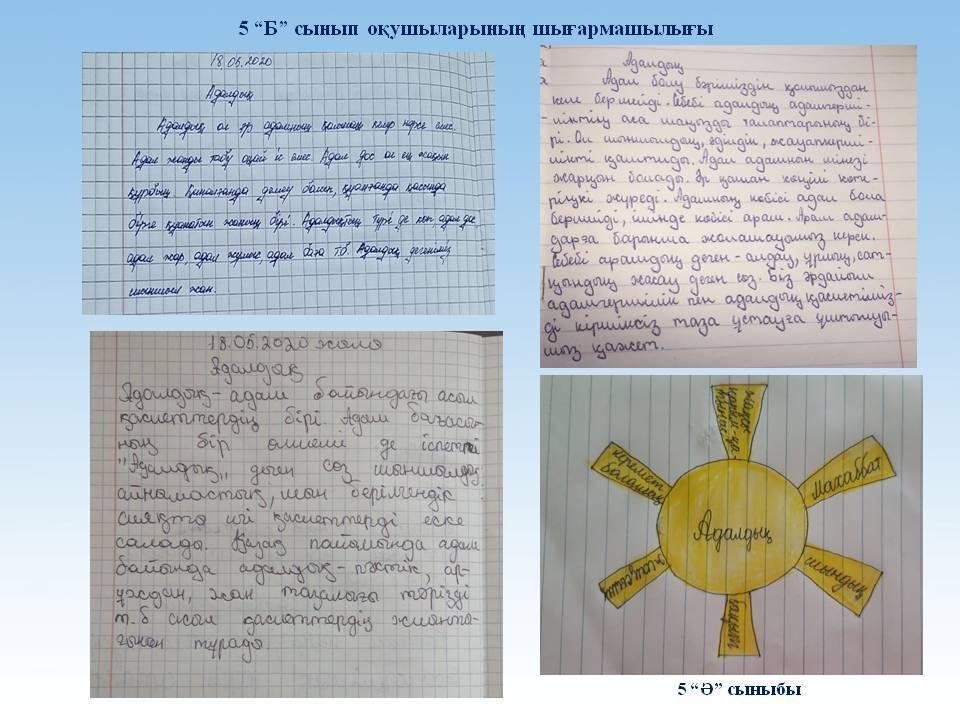 5 “Б” сынып оқушыларының шығармашылығы
18.05.2020
Адалдық
Адалдық ол әр адамның қолынан келер нәрсе емес.
Адал жанды табу оңай іс емес. Адал дос ол ең жақын
құрбың. Қиналғанда демеу болып, қуанғанда қасыңда
бірге қуанатын жанның бірі. Адалдықтың түрі де көп адал дос,
адал жар, адал жұмыс, адал баға т.б. Адалдық дегеніміз
шыншыл жан.
Адалдық
Адал болу бәріміздің қолымыздан
келе бермейді. Себебі адалдық адамгерші-
ліктің аса маңызды талаптарының бі-
рі. Ол шыншылдық, әділдік, жауапкерші-
лікті қамтиды. Адал адамның мінезі
жарқын болады. Әр қашан көңілі көте-
ріңкі жүреді. Адамның көбісі адал бола
бермейді, ішінде көбісі арам. Арам адам-
дарға барынша жоламауымыз керек.
Себебі арамдық деген - алдау, ұрлық, сат-
қындық жасау деген сөз. Біз әрдайым
адамгершілік пен адалдық қасиетіміз-
ді кіршіксіз таза ұстауға ұмтылуы-
мыз қажет.
18.05.2020 жыл
Адалдық
Адалдық - адам бойындағы асыл
қасиеттердің бірі. Адам бағасы-
ның бір өлшемі де іспетті
"Адалдық" деген сөз шыншылдық
айнымастық, шын берілгендік
сияқты игі қасиеттерді еске
салады. Қазақ пайымында адам
бойында адалдық - пәктік, ар-
ұждан, жан тазалығы тәрізді
т.б асыл қасиеттердің жиынты-
ғынан тұрады.
Адалдық
махаббат
шындық
бақыт
керемет
болашақ
5 “Ә” сыныбы